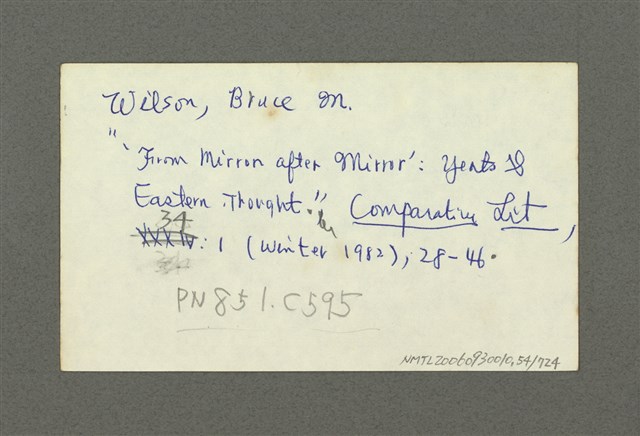 Wilson, Bruce M.
"'From Mirror after Mirror': Yeats &
Eastern Thought." Comparative Lit,
34
XXXIV: 1 (Winter 1982), 28-46.
PN851.C595
NMTL20060930010,54/724